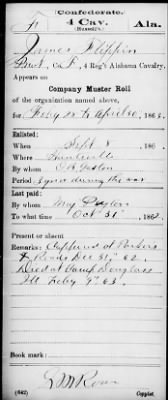 Confederate.
4 Cav.
Ala.
(Russell's)
James Flippin
Pvt, Co. F, 4 Reg't Alabama Cavalry.
Appears on
Company Muster Roll
of the organization named above,
for Feby 28 to April 30, 186
Enlisted:
When Sept 8, 186
Where Huntsville
By whom
Period 3 years or during the war
Last paid:
By whom Maj
To what time Oct 31, 1862.
Present or absent
Remarks: Captured at Parkers
X Roads Dec 31, 62.
Died at Camp Douglass
Ill Feby 9" 63.
Book mark:
(642)
Copyist.